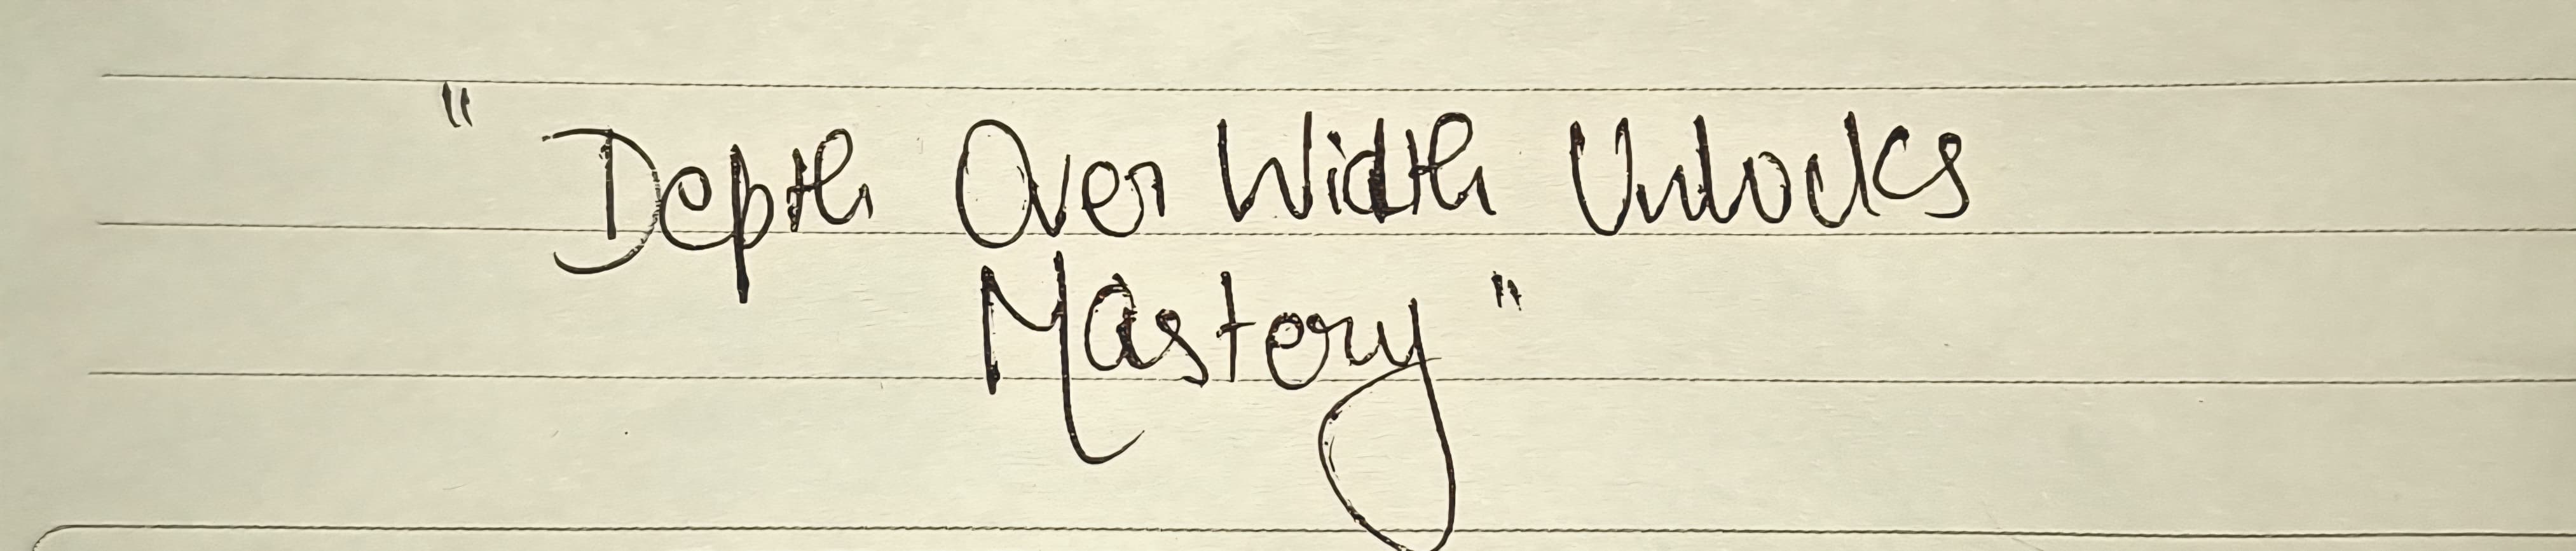 "Depth Over Width Unlocks
Mastery"